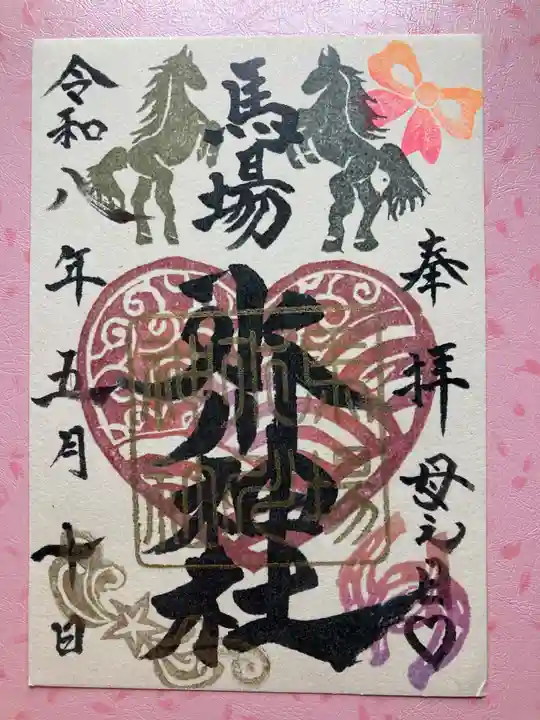 奉拝 母の日♡
馬場
氷川神社
令和八年五月十日